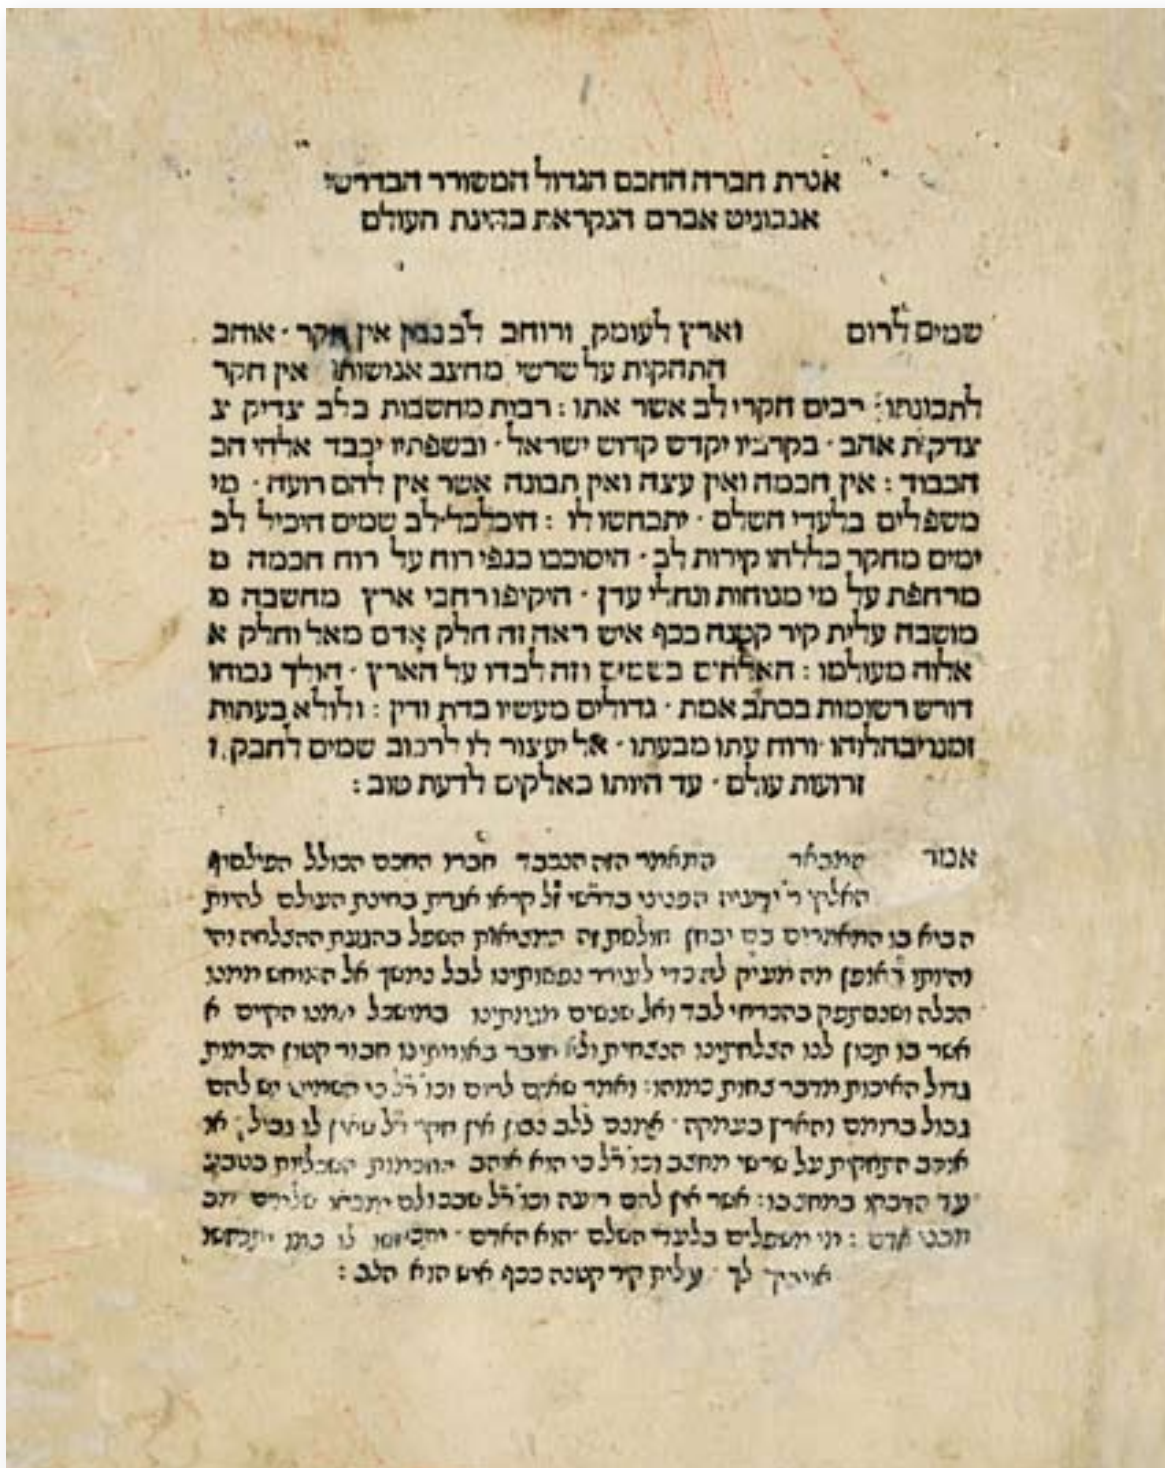 אגרת חברה החכם הגדול המשורר הבדרשי
אנבוניט אברם הנקראת בחינת העולם
שמים לרום וארץ לעומק ורוחב לב נבון אין חקר · אוהב
התחקות על שרשי מחצב אנושותו אין חקר
לתבונתו : רבים חקרי לב אשר אתו : רבות מחשבות בלב צדיק צ
צדקות אהב · בקרביו יקדש קדוש ישראל · ובשפתיו יכבד אלהי הכ
הכבוד : אין חכמה ואין עצה ואין תבונה אשר אין להם רועה · מי
משפלים בלעדי השלם · יתכחשו לו : היכלכל לב שמים היכיל לב
ימים מחקר כללהו קירות לב · היסוככו כנפי רוח על רוח חכמה מ
מרחפת על מי מנוחות ונחלי עדן · היקיפו רחבי ארץ מחשבה מ
מושבה עלית קיר קטנה ככף איש ראה זה חלק אדם מאל וחלק א
אלוה מעולמו : האלהים בשמים וזה לבדו על הארץ · הולך נכוחו
דורש רשומות בכתב אמת · גדולים מעשיו בדת ודין : ולולא בעתות
זמנו יבהלוהו ורוח עתו מבעתו · אל יעצור לו לרכוב שמים לחבק ז
זרועות עולם · עד היותו כאלקים לדעת טוב :
אמר המבאר המאמר הזה הנכבד חברו החכם הכולל הפילסוף
האלץ ר' ידעיה הפניני בדרשי ז"ל קראו אגרת בחינת העולם להיות
הביא בו המאמרים בם יבחן חולשת זה המציאות השפל בהגעת ההצלחה
מה מעיק לה כדי לעורר נפשותינו לבל נמשך אל
הכלה ושנסתפק בהכרחי לבד ואל שנשים מגמתינו במושכל הקיים א
אשר בו תכון לנו הצלחתינו הנצחית ולא חובר באומתינו חבור קטון הכמות
גדול האיכות מדבר צחות כמוהו : ואמר שמים לרום וכו' ר"ל כי השמים יש להם
גבול ברומם והארץ בעמקה · אמנם ללב נבון אין חקר ר"ל שאין לו גבול · או
אוהב התחקות על שרשי מחצב וכו' ר"ל כי הוא אוהב החכמות השכליות בטבע
עד הדבקו במחצבו : אשר אין להם רועה וכו' ר"ל
: ומי משפלים בלעדי השלם · הוא האדם · לו כמו
לך · עלית קיר קטנה ככף איש הוא הלב :